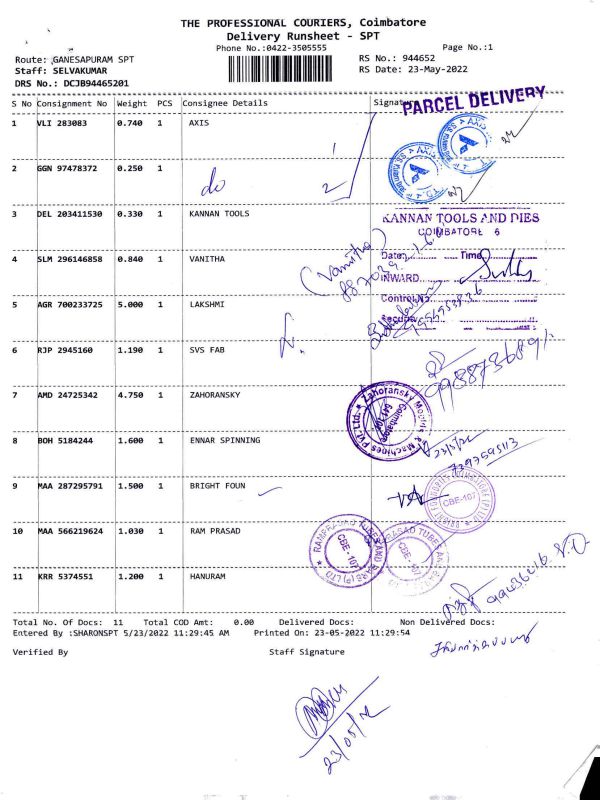 THE PROFESSIONAL COURIERS, Coimbatore
Delivery Runsheet - SPT
Phone No.:0422-3505555
Page No.:1
Route: GANESAPURAM SPT
RS No.: 944652
Staff: SELVAKUMAR
RS Date: 23-May-2022
DRS No.: DCJB94465201
S No Consignment No Weight PCS Consignee Details Signature
PARCEL DELIVERY
1 VLI 283083 0.740 1 AXIS
1
2 GGN 97478372 0.250 1
do 2
3 DEL 203411530 0.330 1 KANNAN TOOLS
KANNAN TOOLS AND DIES
COIMBATORE 6
4 SLM 296146858 0.840 1 VANITHA
(Vanitha)
Date: Time
INWARD
Control No.
5 AGR 700233725 5.000 1 LAKSHMI
6 RJP 2945160 1.190 1 SVS FAB
7 AMD 24725342 4.750 1 ZAHORANSKY
Zahoransky Moulds & Machines Pvt. Ltd. Coimbatore
8 BOH 5184244 1.600 1 ENNAR SPINNING
23/5/22
7397595113
9 MAA 287295791 1.500 1 BRIGHT FOUN
CBE-107
10 MAA 566219624 1.030 1 RAM PRASAD
RAMPRASAD TUBES AND BARS (P) LTD CBE-107
CBE-107
11 KRR 5374551 1.200 1 HANURAM
Total No. Of Docs: 11 Total COD Amt: 0.00 Delivered Docs: Non Delivered Docs:
Entered By :SHARONSPT 5/23/2022 11:29:45 AM Printed On: 23-05-2022 11:29:54
Verified By Staff Signature
23/05/22